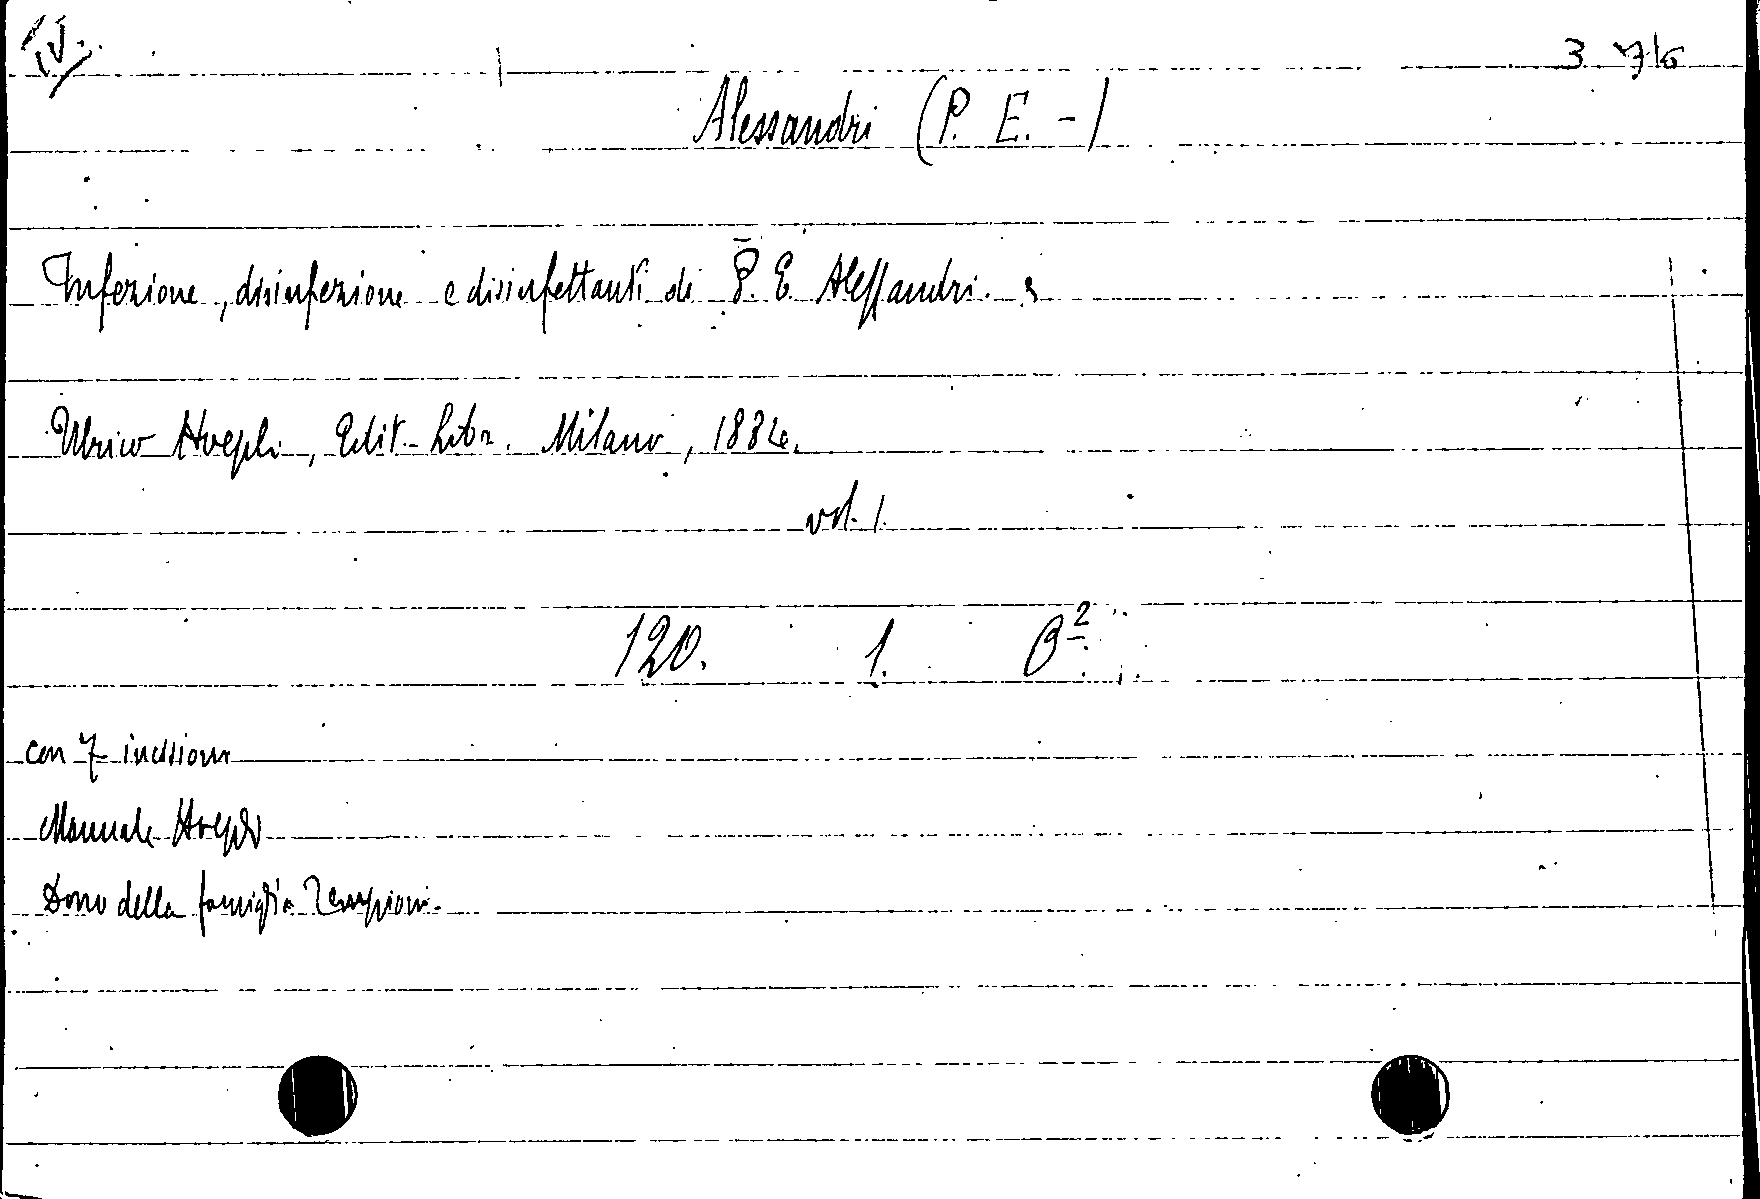 IV.
3 716
Alessandri (P. E. -)
Infezione, disinfezione e disinfettanti di P. E. Alessandri.
Ulrico Hoepli, Edit-Libr. Milano, 1884.
vol. 1.
120. 1. B².
con 7 incisioni
Manuale Hoepli
Dono della famiglia